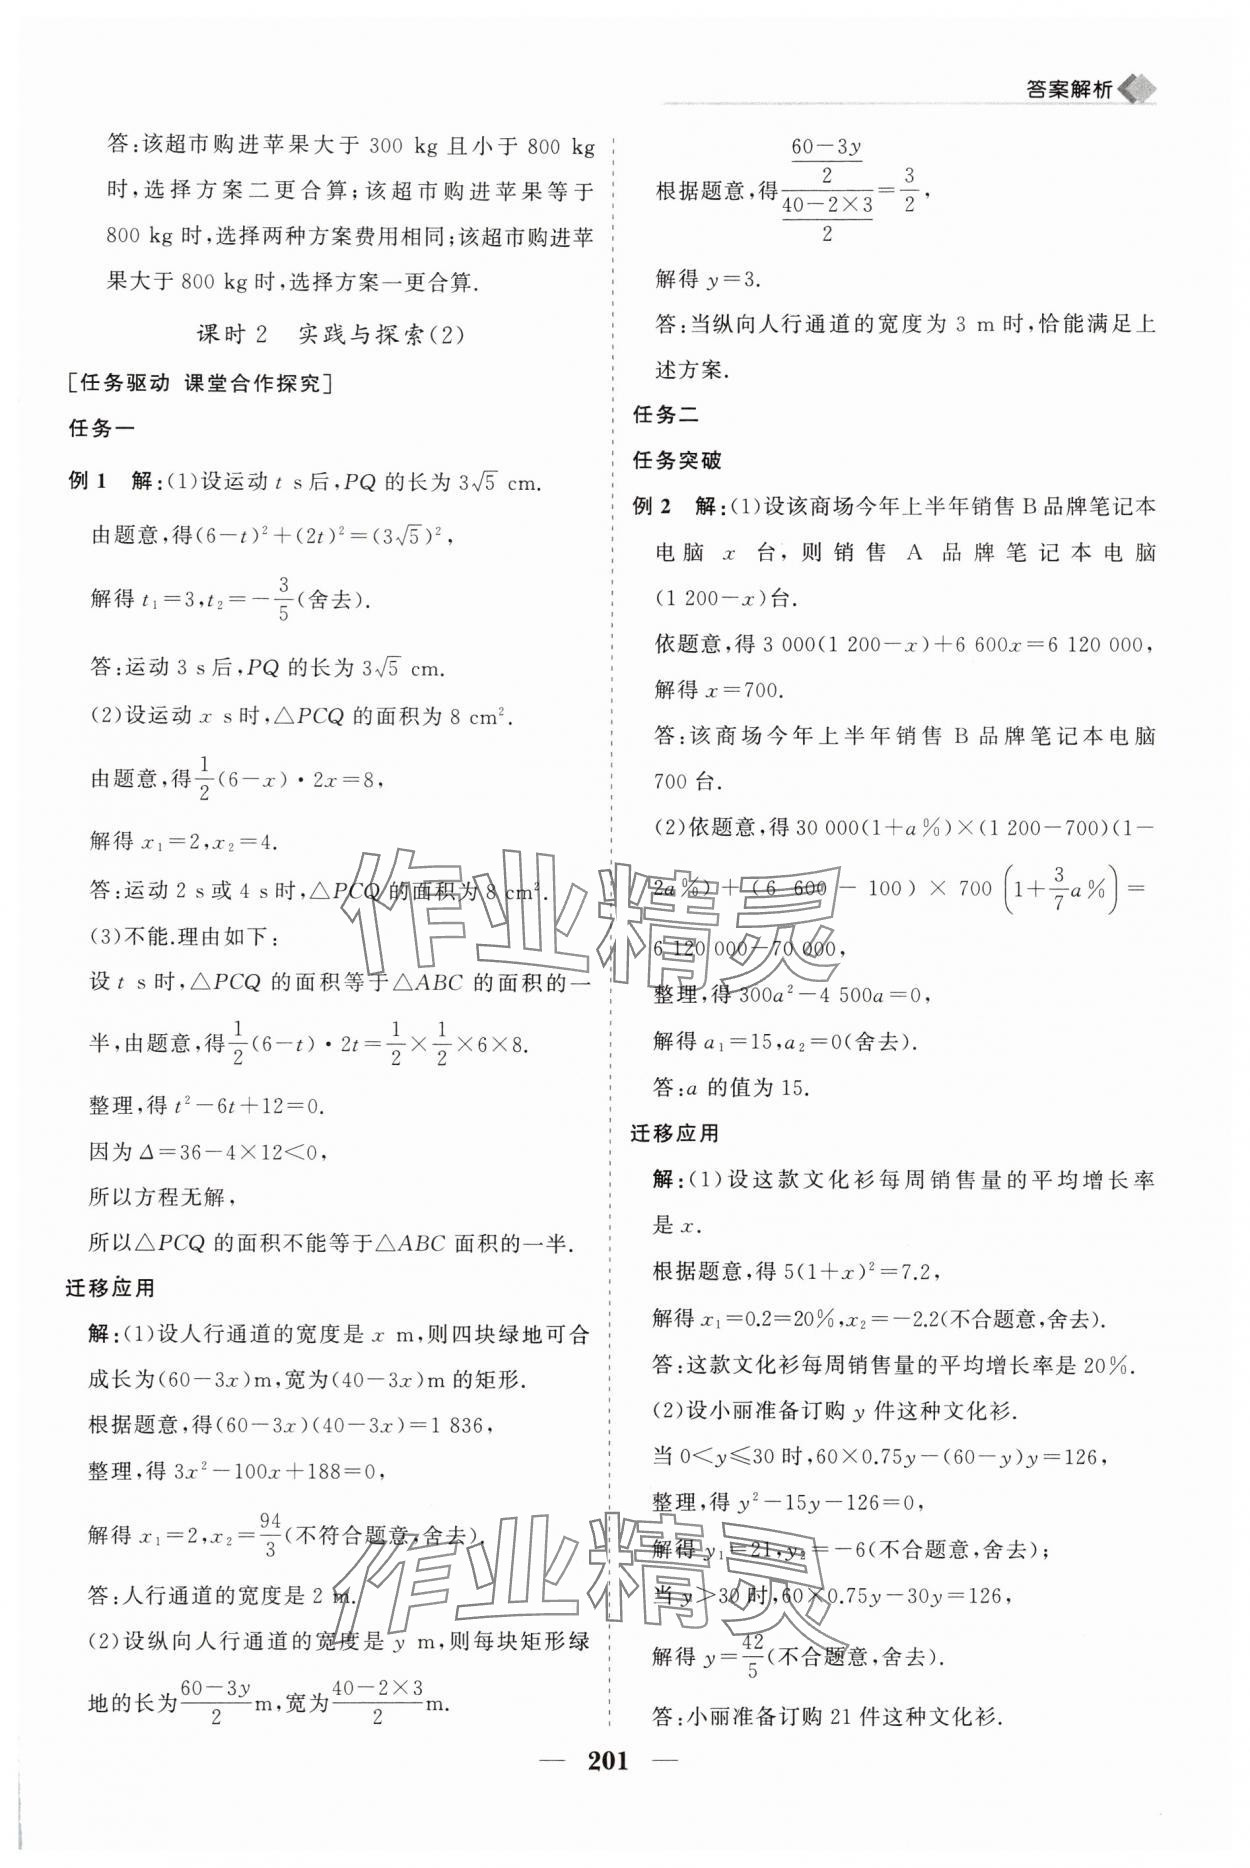 答案解析
答:该超市购进苹果大于 300 kg 且小于 800 kg
时,选择方案二更合算;该超市购进苹果等于
800 kg 时,选择两种方案费用相同;该超市购进苹
果大于 800 kg 时,选择方案一更合算.
课时 2 实践与探索(2)
[任务驱动 课堂合作探究]
任务一
例 1 解:(1)设运动 t s 后,PQ 的长为 3√5 cm.
由题意,得(6-t)²+(2t)²=(3√5)²,
解得 t₁=3,t₂=-3/5(舍去).
答:运动 3 s 后,PQ 的长为 3√5 cm.
(2)设运动 x s 时,△PCQ 的面积为 8 cm².
由题意,得1/2(6-x)·2x=8,
解得 x₁=2,x₂=4.
答:运动 2 s 或 4 s 时,△PCQ 的面积为 8 cm².
(3)不能.理由如下:
设 t s 时,△PCQ 的面积等于△ABC 的面积的一
半,由题意,得1/2(6-t)·2t=1/2×1/2×6×8.
整理,得 t²-6t+12=0.
因为 Δ=36-4×12<0,
所以方程无解,
所以△PCQ 的面积不能等于△ABC 面积的一半.
迁移应用
解:(1)设人行通道的宽度是 x m,则四块绿地可合
成长为(60-3x)m,宽为(40-3x)m 的矩形.
根据题意,得(60-3x)(40-3x)=1 836,
整理,得 3x²-100x+188=0,
解得 x₁=2,x₂=94/3(不符合题意,舍去).
答:人行通道的宽度是 2 m.
(2)设纵向人行通道的宽度是 y m,则每块矩形绿
地的长为(60-3y)/2 m,宽为(40-2×3)/2 m.
根据题意,得((60-3y)/2)/((40-2×3)/2)=3/2,
解得 y=3.
答:当纵向人行通道的宽度为 3 m 时,恰能满足上
述方案.
任务二
任务突破
例 2 解:(1)设该商场今年上半年销售 B 品牌笔记本
电脑 x 台,则销售 A 品牌笔记本电脑
(1 200-x)台.
依题意,得 3 000(1 200-x)+6 600x=6 120 000,
解得 x=700.
答:该商场今年上半年销售 B 品牌笔记本电脑
700 台.
(2)依题意,得 30 000(1+a%)×(1 200-700)(1-
2a%)+(6 600-100)×700(1+3/7a%)=
6 120 000-70 000,
整理,得 300a²-4 500a=0,
解得 a₁=15,a₂=0(舍去).
答:a 的值为 15.
迁移应用
解:(1)设这款文化衫每周销售量的平均增长率
是 x.
根据题意,得 5(1+x)²=7.2,
解得 x₁=0.2=20%,x₂=-2.2(不合题意,舍去).
答:这款文化衫每周销售量的平均增长率是 20%.
(2)设小丽准备订购 y 件这种文化衫.
当 0<y≤30 时,60×0.75y-(60-y)y=126,
整理,得 y²-15y-126=0,
解得 y₁=21,y₂=-6(不合题意,舍去);
当 y>30 时,60×0.75y-30y=126,
解得 y=42/5(不合题意,舍去).
答:小丽准备订购 21 件这种文化衫.
— 201 —
作业精灵
作业精灵